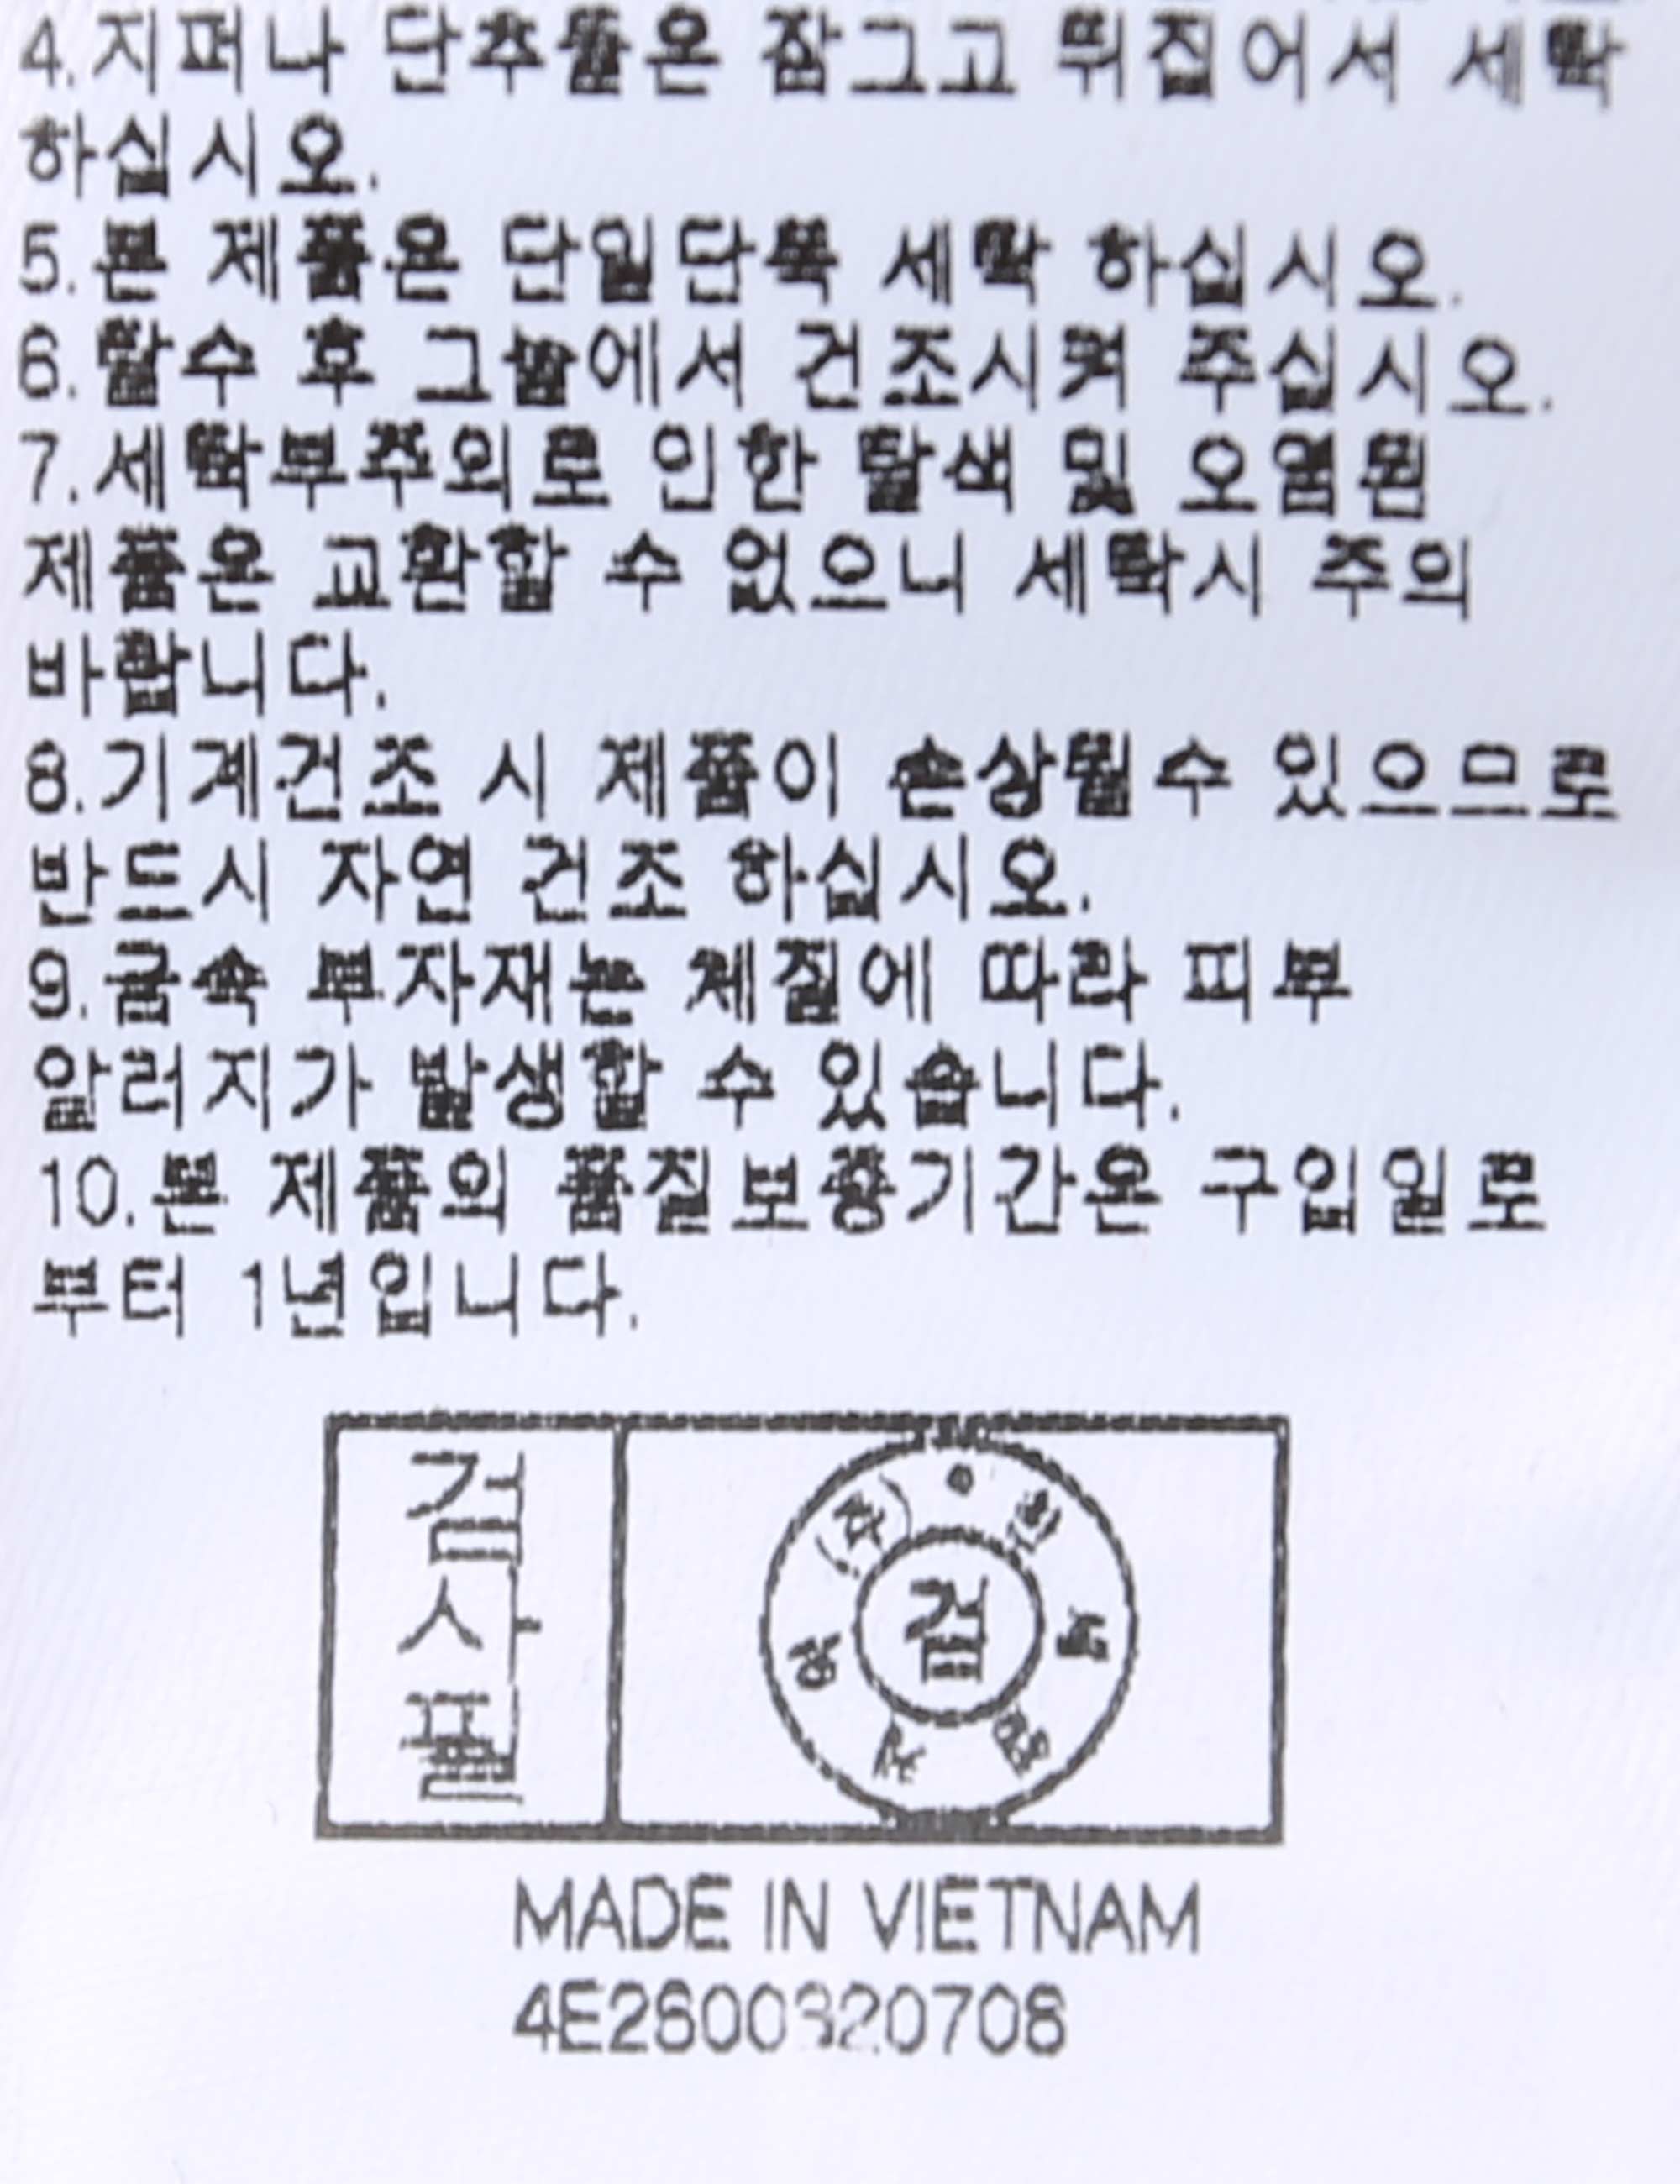 4.지퍼나 단추들은 잠그고 뒤집어서 세탁
하십시오.
5.본 제품은 단일단독 세탁 하십시오.
6.탈수 후 그늘에서 건조시켜 주십시오.
7.세탁부주의로 인한 탈색 및 오염된
제품은 교환할 수 없으니 세탁시 주의
바랍니다.
8.기계건조 시 제품이 손상될수 있으므로
반드시 자연 건조 하십시오.
9.금속 부자재는 체질에 따라 피부
알러지가 발생할 수 있습니다.
10.본 제품의 품질보증기간은 구입일로
부터 1년입니다.
검사필
검
MADE IN VIETNAM